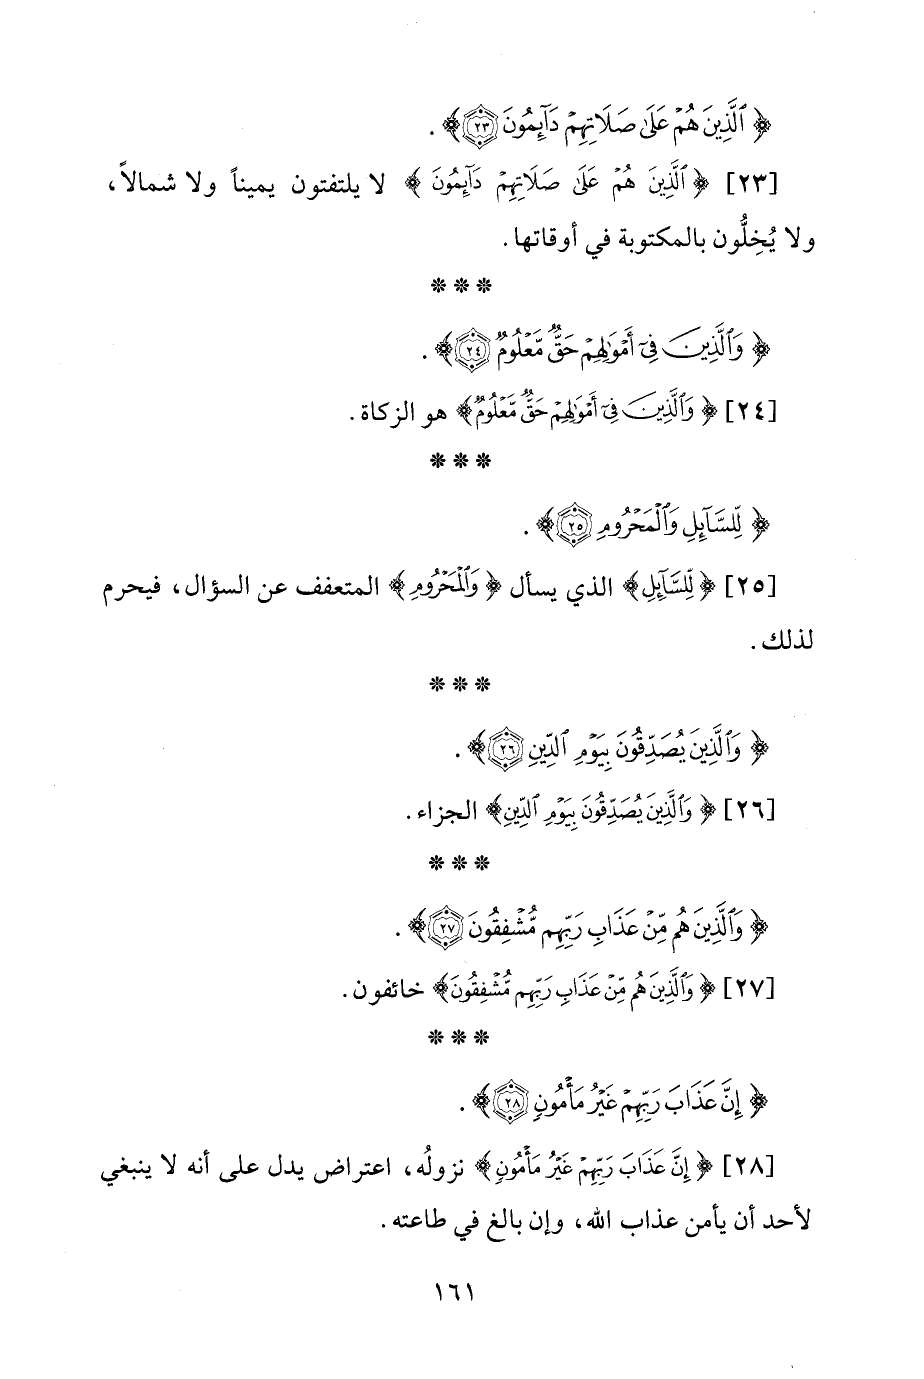 ﴿ ٱلَّذِينَ هُمْ عَلَىٰ صَلَاتِهِمْ دَآئِمُونَ ٢٣ ﴾ .
[٢٣] ﴿ ٱلَّذِينَ هُمْ عَلَىٰ صَلَاتِهِمْ دَآئِمُونَ ﴾ لا يلتفتون يميناً ولا شمالاً،
ولا يُخِلُّون بالمكتوبة في أوقاتها.
* * *
﴿ وَٱلَّذِينَ فِىٓ أَمْوَٰلِهِمْ حَقٌّ مَّعْلُومٌ ٢٤ ﴾ .
[٢٤] ﴿ وَٱلَّذِينَ فِىٓ أَمْوَٰلِهِمْ حَقٌّ مَّعْلُومٌ ﴾ هو الزكاة.
* * *
﴿ لِّلسَّآئِلِ وَٱلْمَحْرُومِ ٢٥ ﴾ .
[٢٥] ﴿ لِّلسَّآئِلِ ﴾ الذي يسأل ﴿ وَٱلْمَحْرُومِ ﴾ المتعفف عن السؤال، فيحرم
لذلك.
* * *
﴿ وَٱلَّذِينَ يُصَدِّقُونَ بِيَوْمِ ٱلدِّينِ ٢٦ ﴾ .
[٢٦] ﴿ وَٱلَّذِينَ يُصَدِّقُونَ بِيَوْمِ ٱلدِّينِ ﴾ الجزاء.
* * *
﴿ وَٱلَّذِينَ هُم مِّنْ عَذَابِ رَبِّهِم مُّشْفِقُونَ ٢٧ ﴾ .
[٢٧] ﴿ وَٱلَّذِينَ هُم مِّنْ عَذَابِ رَبِّهِم مُّشْفِقُونَ ﴾ خائفون.
* * *
﴿ إِنَّ عَذَابَ رَبِّهِمْ غَيْرُ مَأْمُونٍ ٢٨ ﴾ .
[٢٨] ﴿ إِنَّ عَذَابَ رَبِّهِمْ غَيْرُ مَأْمُونٍ ﴾ نزولُه، اعتراض يدل على أنه لا ينبغي
لأحد أن يأمن عذاب الله، وإن بالغ في طاعته.
١٦١